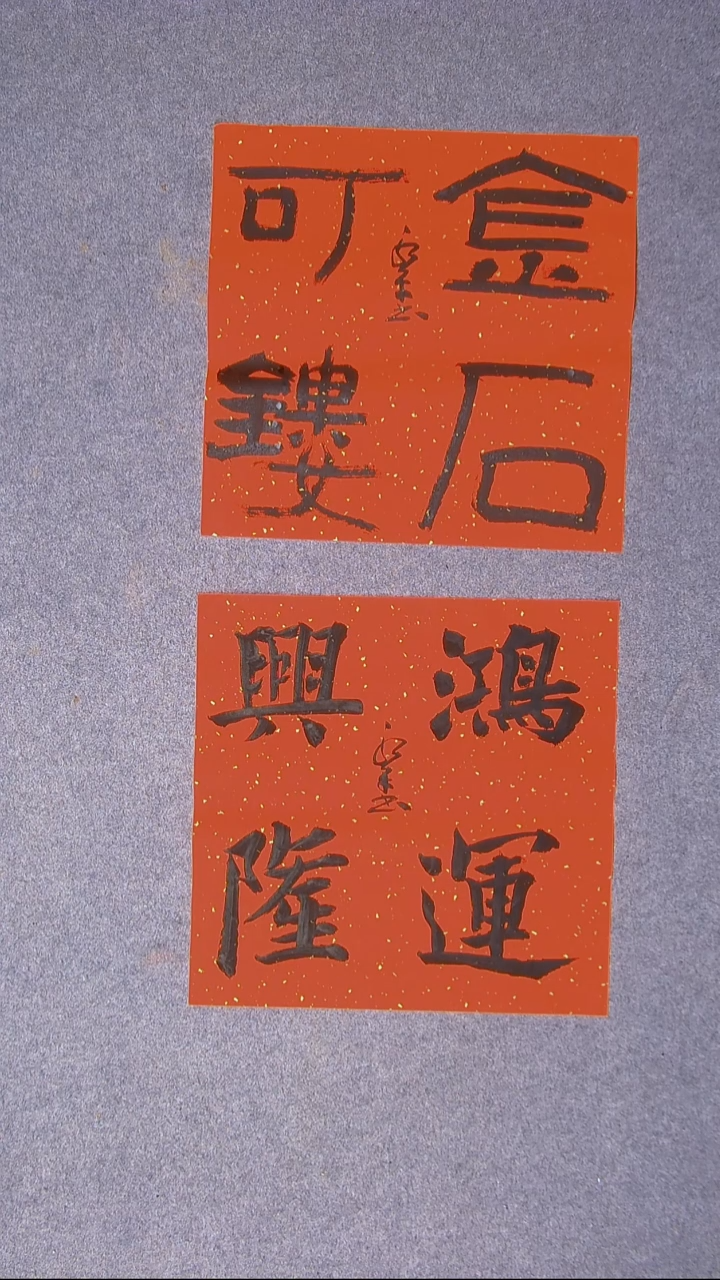 金石
可鏤
鴻運
興隆